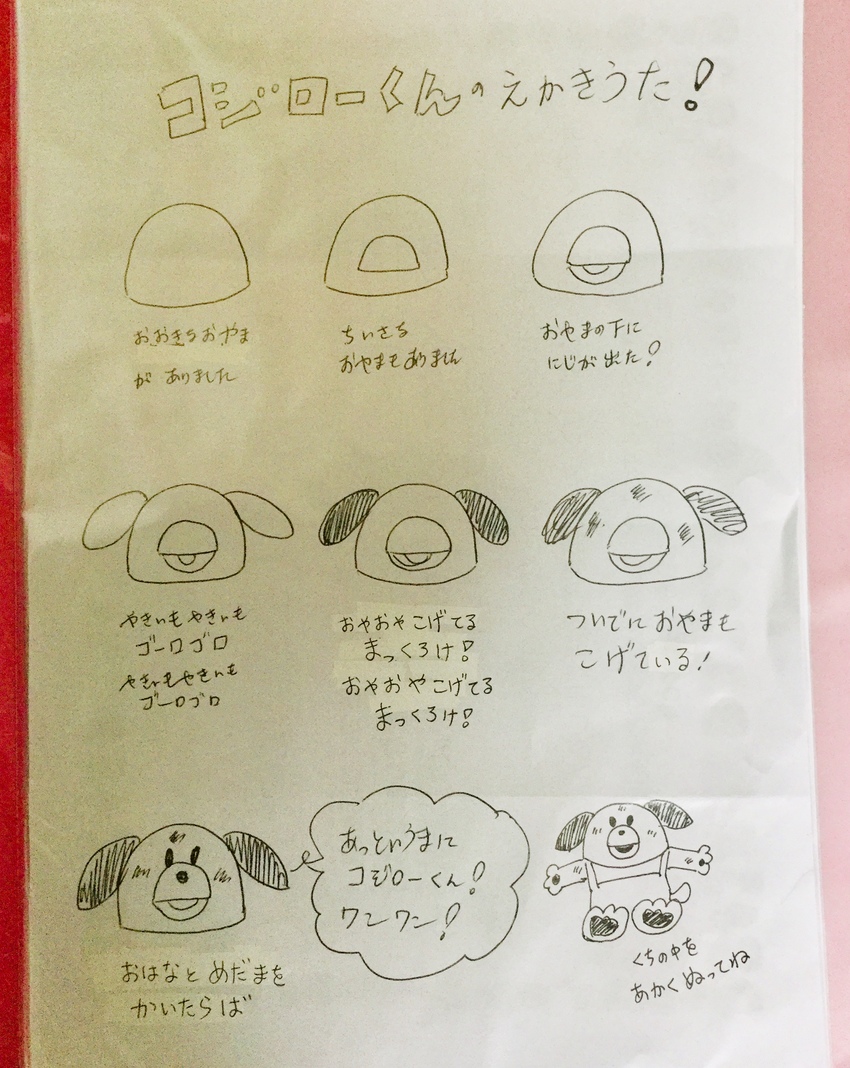 コジローくんのえかきうた!
おおきなおやま
が ありました
ちいさな
おやまもありました
おやまの下に
にじが出た!
やきいもやきいも
ゴーロゴロ
やきいもやきいも
ゴーロゴロ
おやおやこげてる
まっくろけ!
おやおやこげてる
まっくろけ!
ついでにおやまも
こげている!
おはなとめだまを
かいたらば
あっというまに
コジローくん!
ワンワン!
くちの中を
あかくぬってね